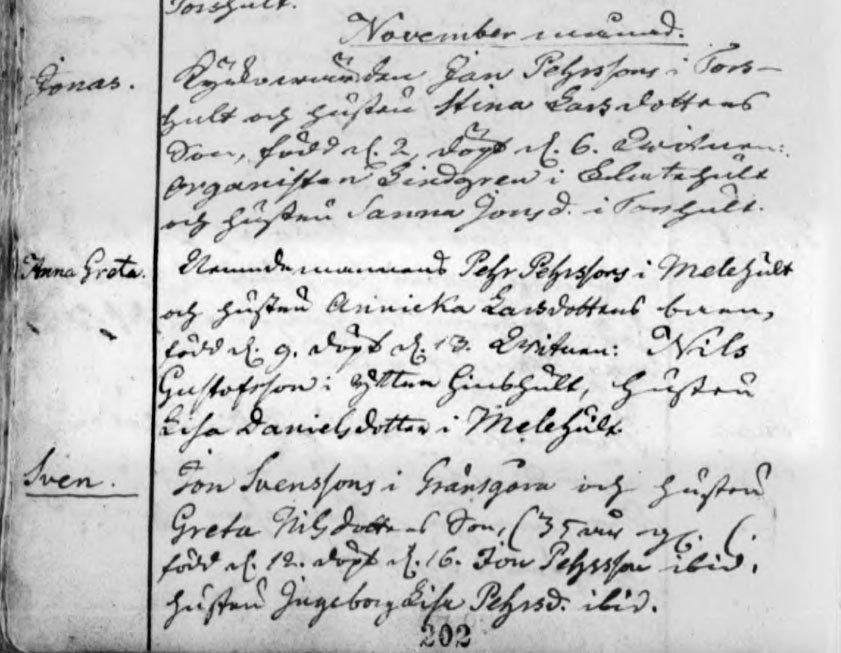 Torshult.
November månad.
Jonas. Kyrkovärden Jan Pehrssons i Tors-
hult och hustru Stina Larsdotters
Son, född d. 2, döpt d. 6. Wittnen:
Organisten Lindgren i
och hustru Sanna Jonsd. i Torshult.
Anna Greta. Nämndemannens Pehr Pehrssons i Melehult
och hustru Annicka Larsdotters barn,
född d. 9. döpt d. 13. Wittnen: Nils
Gustafsson i yttra hustru
Lisa Danielsdotter i Melehult
Sven. Jon Svenssons i Gränsgöra och hustru
Greta Nilsdotters Son, (35 år
född d. 12. döpt d. 16. Jon Pehrsson ibid.
hustru Ingeborg Lisa Pehrsd. ibid.
202